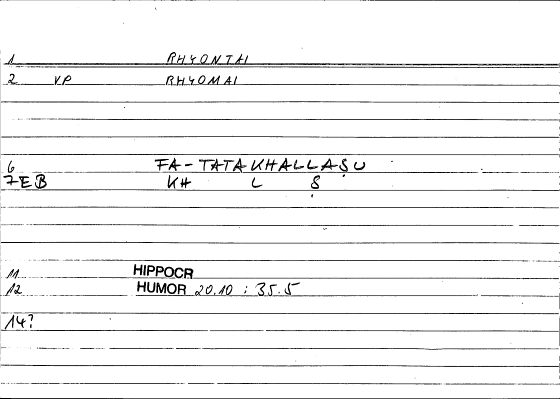 1 RHYONTAI
2 VP RHYOMAI
6 FA-TATAKHALLAṢU
7EB KH L Ṣ
11 HIPPOCR
12 HUMOR 20.10 : 35.5
14?